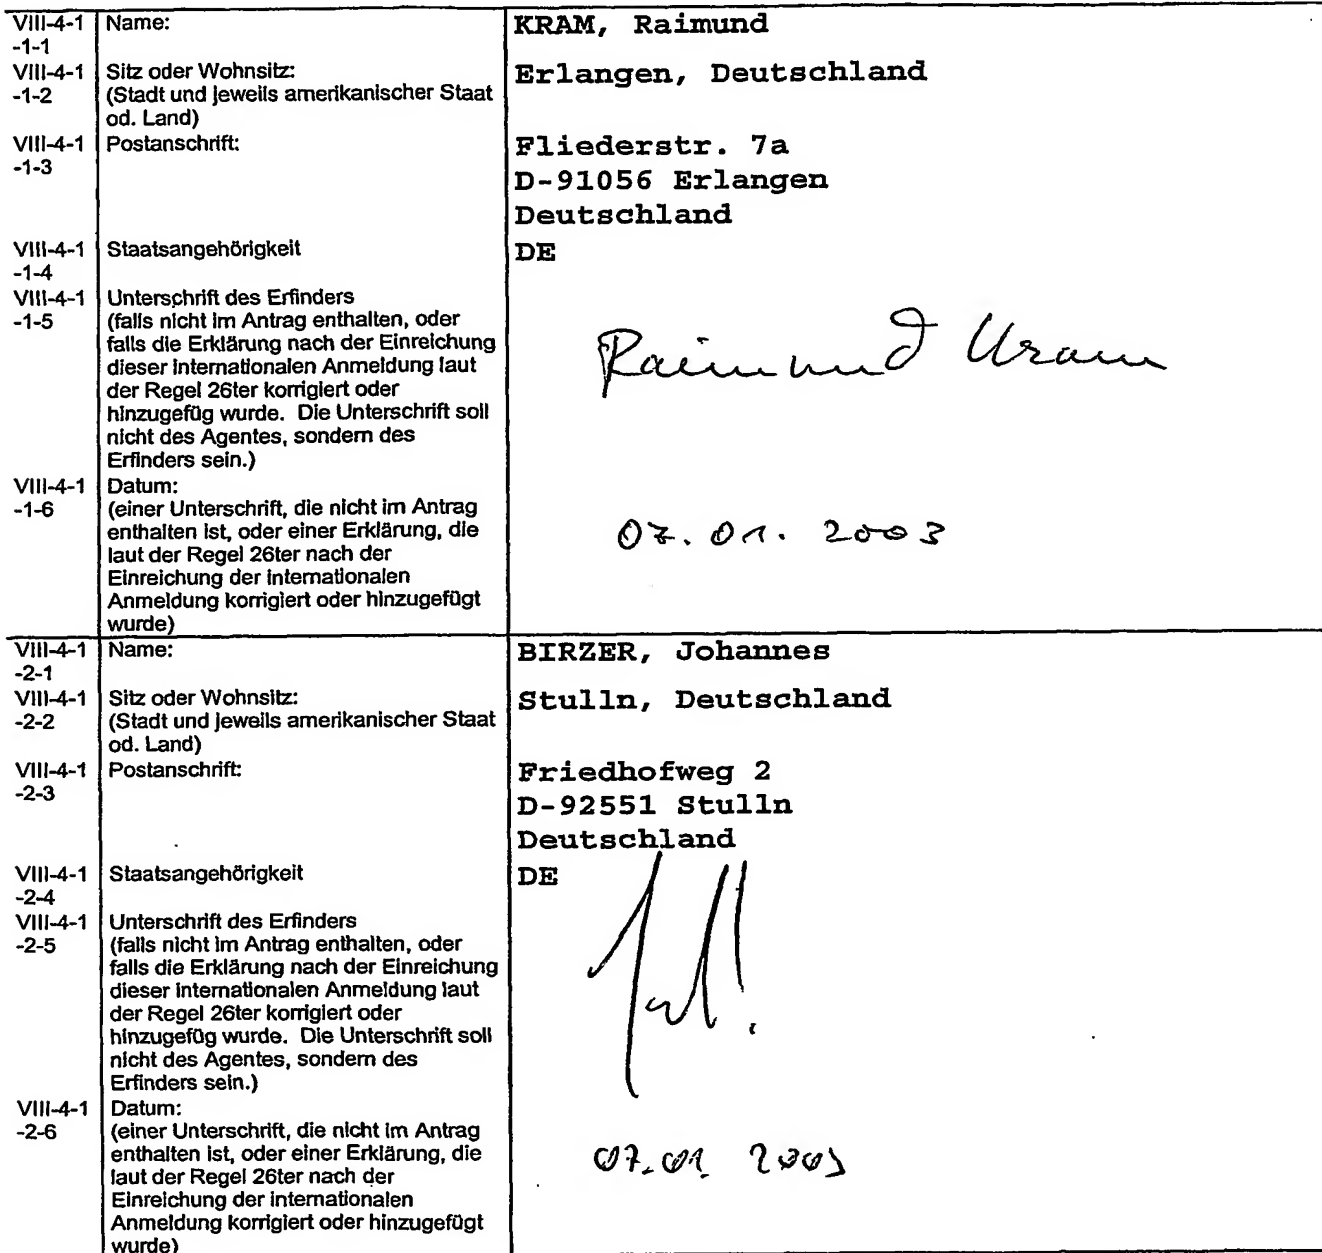 VIII-4-1 Name: KRAM, Raimund
-1-1
VIII-4-1 Sitz oder Wohnsitz: Erlangen, Deutschland
-1-2 (Stadt und jeweils amerikanischer Staat
od. Land)
VIII-4-1 Postanschrift: Fliederstr. 7a
-1-3 D-91056 Erlangen
Deutschland
VIII-4-1 Staatsangehörigkeit DE
-1-4
VIII-4-1 Unterschrift des Erfinders
-1-5 (falls nicht im Antrag enthalten, oder
falls die Erklärung nach der Einreichung
dieser internationalen Anmeldung laut
der Regel 26ter korrigiert oder
hinzugefüg wurde. Die Unterschrift soll
nicht des Agentes, sondern des
Erfinders sein.)
Raimund Kram
VIII-4-1 Datum:
-1-6 (einer Unterschrift, die nicht im Antrag
enthalten ist, oder einer Erklärung, die
laut der Regel 26ter nach der
Einreichung der internationalen
Anmeldung korrigiert oder hinzugefügt
wurde)
07.01.2003
VIII-4-1 Name: BIRZER, Johannes
-2-1
VIII-4-1 Sitz oder Wohnsitz: Stulln, Deutschland
-2-2 (Stadt und jeweils amerikanischer Staat
od. Land)
VIII-4-1 Postanschrift: Friedhofweg 2
-2-3 D-92551 Stulln
Deutschland
VIII-4-1 Staatsangehörigkeit DE
-2-4
VIII-4-1 Unterschrift des Erfinders
-2-5 (falls nicht im Antrag enthalten, oder
falls die Erklärung nach der Einreichung
dieser internationalen Anmeldung laut
der Regel 26ter korrigiert oder
hinzugefüg wurde. Die Unterschrift soll
nicht des Agentes, sondern des
Erfinders sein.)
VIII-4-1 Datum:
-2-6 (einer Unterschrift, die nicht im Antrag
enthalten ist, oder einer Erklärung, die
laut der Regel 26ter nach der
Einreichung der internationalen
Anmeldung korrigiert oder hinzugefügt
wurde)
07.01.2003